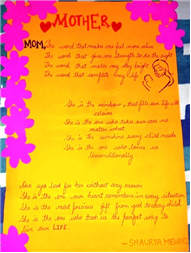 MOTHER
MOM, The word that makes me feel more alive
The word that give me strength to do the right
The word that makes my day bright
The word that completes my life
She is the rainbow, that fills our life with
colours
She is the one who takes our care no
matter what
She is the sunshine every child needs
She is the one who loves us
Unconditionally
She is the one
She is the most precious gift from god to every child
She is the one who
live our LIFE.
- SHAURYA